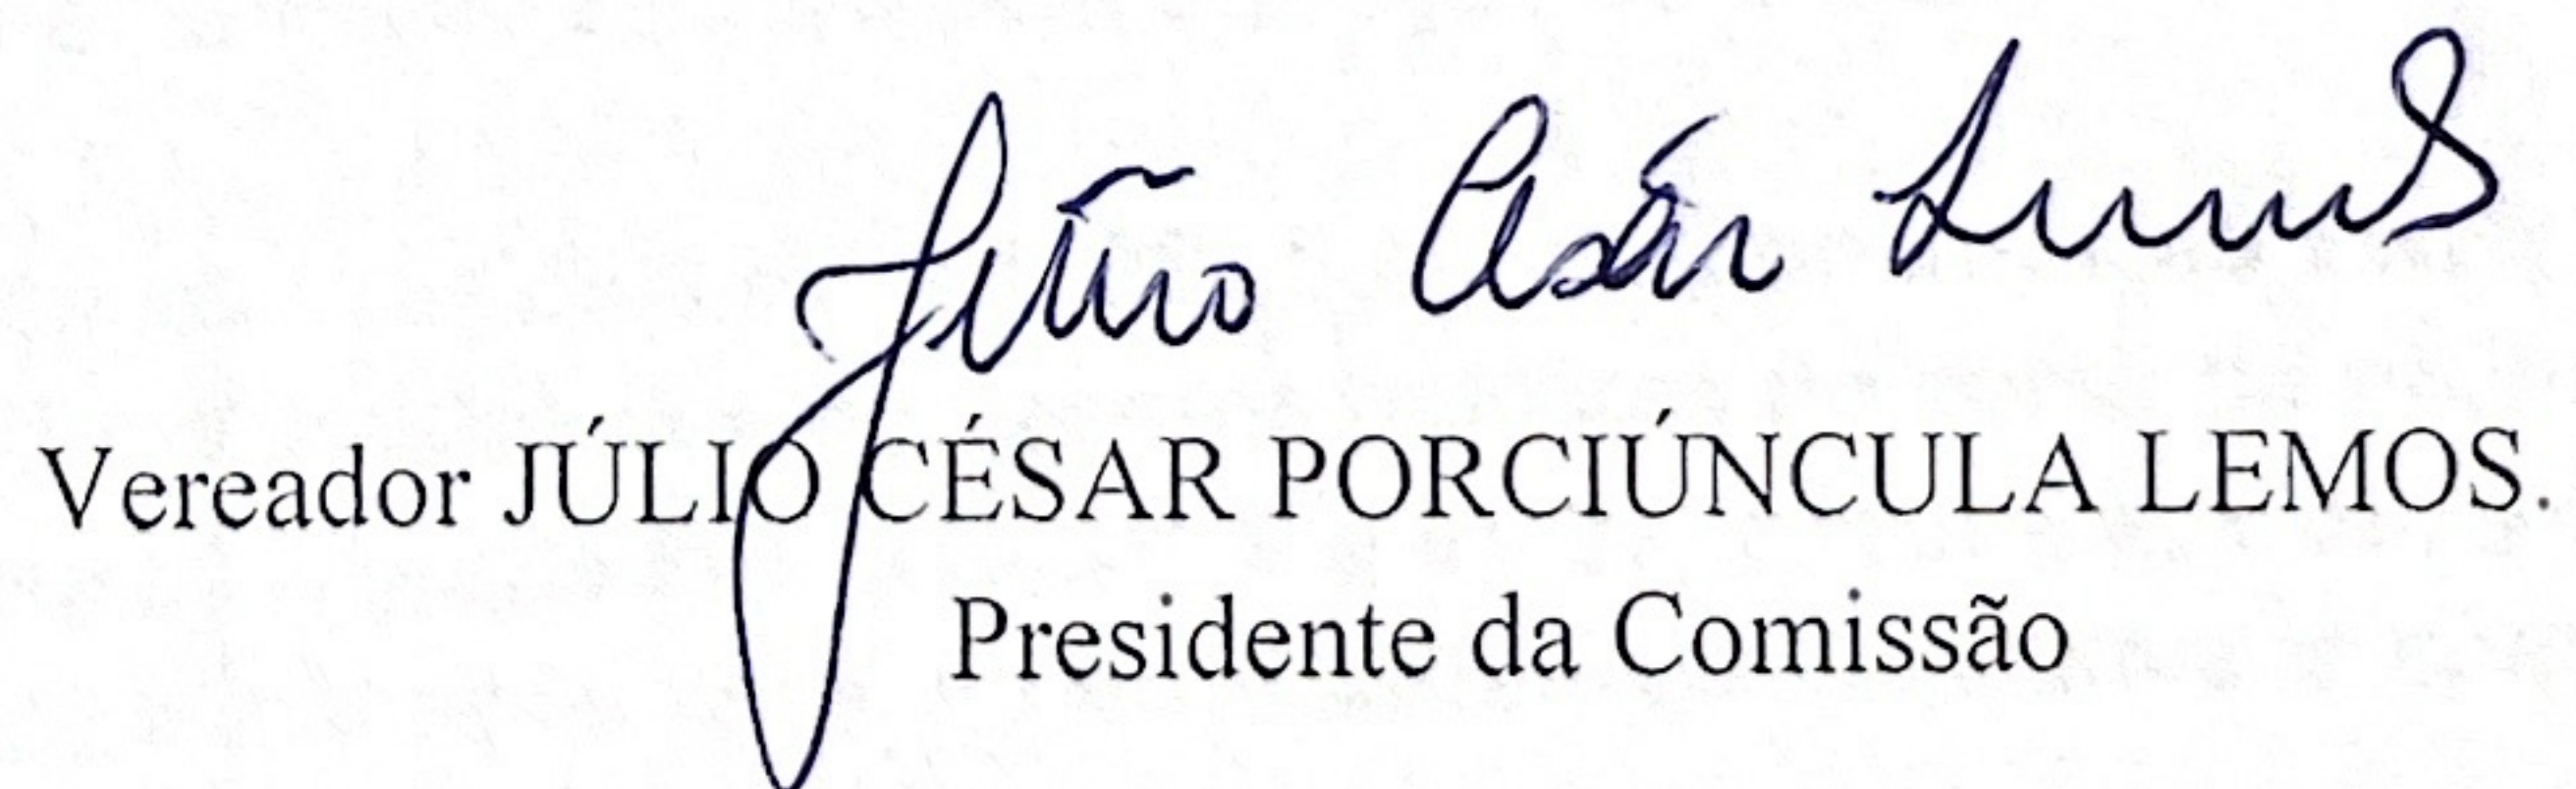 Júlio César Lemos
Vereador JÚLIO CÉSAR PORCIÚNCULA LEMOS.
Presidente da Comissão